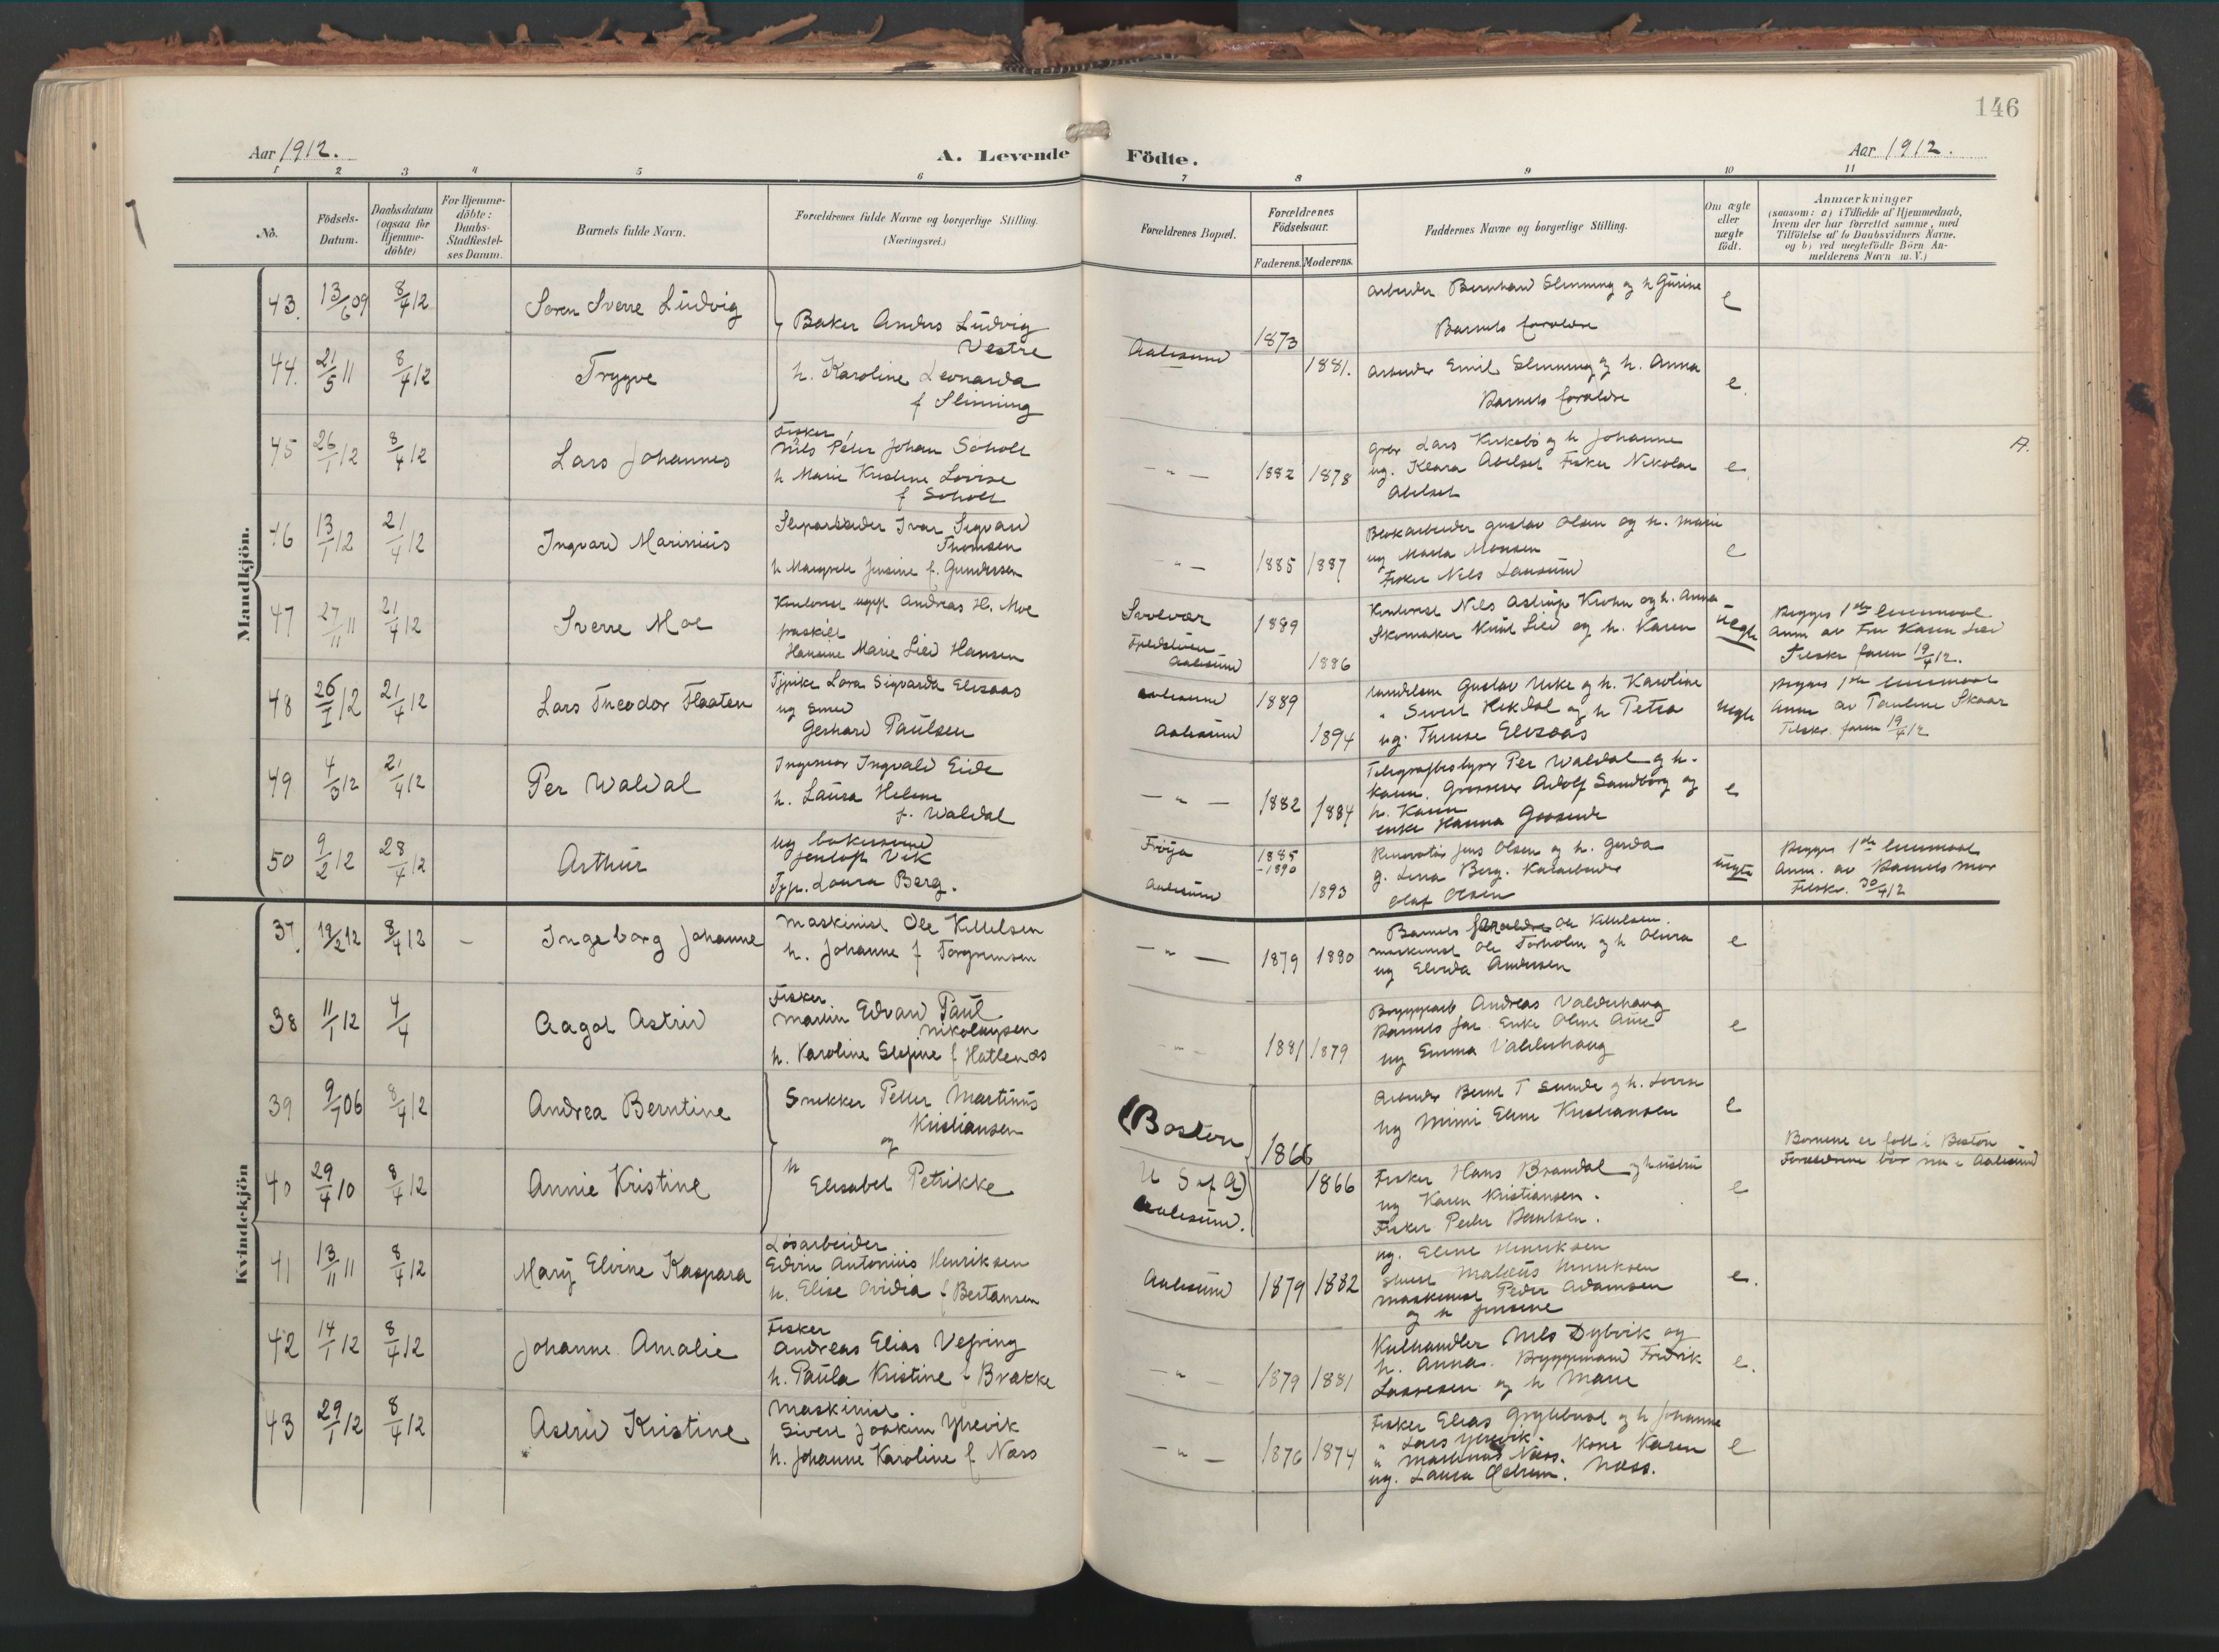 146
Aar 1912. A. Levende Födte. Aar 1912.
1 2 3 4 5 6 7 8 9 10 11
No.
Födsels-Datum.
Daabsdatum (ogsaa for Hjemme-döbte)
For Hjemme-döbte: Daabs-Stadfæstel-ses Datum.
Barnets fulde Navn.
Forældrenes fulde Navne og borgerlige Stilling.
(Næringsvei.)
Forældrenes Bopæl.
Forældrenes Födselsaar.
Faderens. Moderens.
Faddernes Navne og borgerlige Stilling.
Om ægte eller uægte födt.
Anmærkninger
(saasom: a) i Tilfælde af Hjemmedaab,
hvem der har forrettet samme, med
Tilföielse af to Daabsvidners Navne,
og b) ved uægtefödte Börn An-
melderens Navn m. V.)
Mandkjön.
43. 13/6 09 8/4 12 Søren Sverre Ludvig
Baker Anders Ludvig
Vestre
h. Karoline Leonarda
f Slinning
Aalesund 1873 1881.
Arbeider Bernhard Slinning og h Gurine
Barnets foraldre
e
44. 21/5 11 8/4 12 Trygve
Arbeider Emil Slinning og h. Anna
Barnets foraldre
e.
45 26/1 12 8/4 12 Lars Johannes
Fisker
Nils Peter Johan Soholt
h Marie Kristine Lovise
f Soholt
- " - 1882 1878
Lars Kirkebö og h Johanne
ug. Klara Abelset Fisker Nikolai
Abelset
e.
A.
46 13/1 12 21/4 12 Ingvard Marinius
Sliparbeider Ivar Sigvard
Thomsen
h Margrete Jensine f. Gundersen
- " - 1885 1887
Gustav Olsen og h. Marie
ug Marta Monsen
Fisker Nils Lausund
e
47 27/11 11 21/4 12 Sverre Moe
Kontorist ugift Andreas H. Moe
fraskilt
Hansine Marie Lied Hansen
Svolvær
Aalesund
1889 1886
Kontorist Nils Astrup Krohn og h. Anna
Skomaker Knut Lied og h. Karen
uegte
Begges 1ste leiermaal
Anm av Fru Karen Lied
Tilskr. faren 19/4 12.
48 26/1 12 21/4 12 Lars Theodor Flaaten
Tjpike Lara Sigvarda Elisaas
ug Smed
Gerhard Paulsen
Aalesund
Aalesund
1889 1894
Gustav Urke og h. Karoline
" Sivert Hekdal og h Petra
ug. Therese Elisaas
uegte
Begges 1ste leiermaal
Anm av Pauline Skaar
Tilskr. faren 19/4 12
49 4/3 12 21/4 12 Per Waldal
Ingeniør Ingvald Eide
h. Laura Helene
f. Waldal
- " - 1882 1884
Telegrafbestyrer Per Waldal og h.
Karen. Grosserer Adolf Sandborg og
h. Karen
enke Hanna
e
50 9/2 12 28/4 12 Arthur
ug bakersvend
Jentoft Vik
Tjp. Laura Berg.
Fröya
Aalesund
1885
-1890
1893
Jens Olsen og h. Gerda
g. Lina Berg. Kaiarbeider
Olaf Olsen
uegte
Begges 1ste leiermaal
Anm. av Barnets mor
Tilskr. 30/4 12
Kvindekjön
37. 19/2 12 8/4 12 - Ingeborg Johanne
Maskinist Ole Kittelsen
h. Johanne f Torgrimsen
- " - 1879 1880
Barnets foraldre Ole Kittelsen.
Maskinist Ole Torholm og h Olivia
ug Elvida Andersen
e
38 11/1 12 4/4 Aagot Astrid
Fisker
Martin Edvard Paul
Nikolaysen
h. Karoline Elefine f Hatlenæs
- " - 1881 1879
Bryggearb Andreas Valderhaug
Barnets far Enke Oline Aure
ug Emma Valderhaug
e
39 9/7 06 8/4 12 Andrea Berntine
Snekker Petter Martinus
Kristiansen
og
h Elisabet Petrikke
(Boston
U S of A)
Aalesund.
1866 1866
Arbeider Bernt T Sunde og h. Lovise
ug Mimi Eline Kristiansen
e
Børnene er født i Boston
Foreldrene bor nu i Aalesund
40 29/4 10 8/4 12 Annie Kristine
Fisker Hans Brandal og hustru
ug Karen Kristiansen.
Fisker Peder Berntsen.
e
41 13/11 11 8/4 12 Mary Elvine Kaspara
Løsarbeider
Edvin Antonius Henriksen
h. Elise Ovidia f Bertansen
Aalesund 1879 1882
ug. Eline Henriksen
Matæus Henriksen
Maskinist Peder Adamsen
og h Jensine
e.
42 14/1 12 8/4 12 Johanne Amalie
Fisker
Andreas Elias Vefring
h. Paula Kristine f Brække
- " - 1879 1881
Kulhandler Nils Dybvik og
h. Anna. Bryggemand Fredrik
Lassesen og h Marie
e.
43 29/1 12 8/4 12 Astrid Kristine
Maskinist.
Sivert Joakim Yrevik
h. Johanne Karoline f Næss
- " - 1876 1874
Fisker Elias Grytebust og h Johanne
" Lars Yrevik.
" Martinus Næss. Kone Karen
ug. Laura Næss.
e